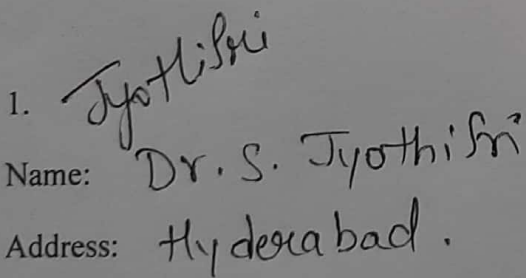 1. JyothiSri
Name: Dr. S. Jyothi Sri
Address: Hyderabad.